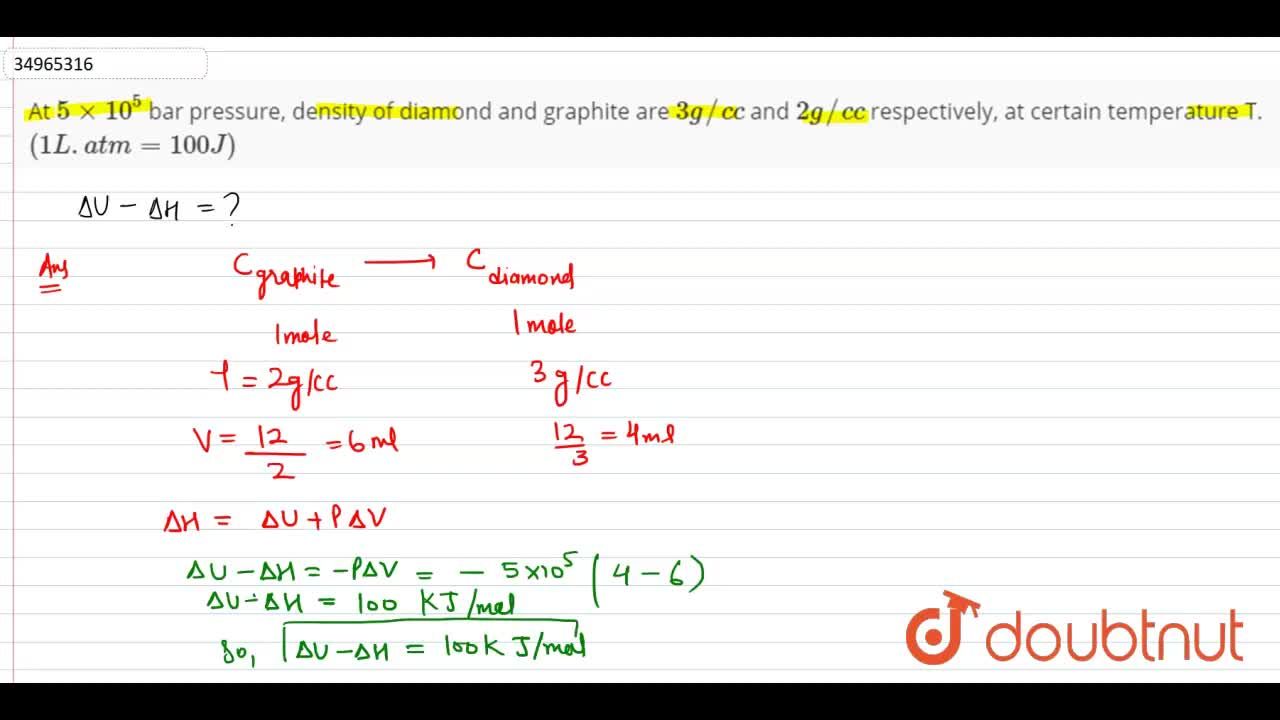 34965316
At 5 × 10⁵ bar pressure, density of diamond and graphite are 3g/cc and 2g/cc respectively, at certain temperature T.
(1L. atm = 100J)
ΔU - ΔH = ?
Ans C graphite ⟶ C diamond
1 mole 1 mole
ρ = 2g/cc 3 g/cc
V = 12/2 = 6 ml 12/3 = 4 ml
ΔH = ΔU + PΔV
ΔU - ΔH = -PΔV = - 5×10⁵ (4 - 6)
ΔU - ΔH = 100 KJ/mol
So, ΔU - ΔH = 100 K J/mol
doubtnut